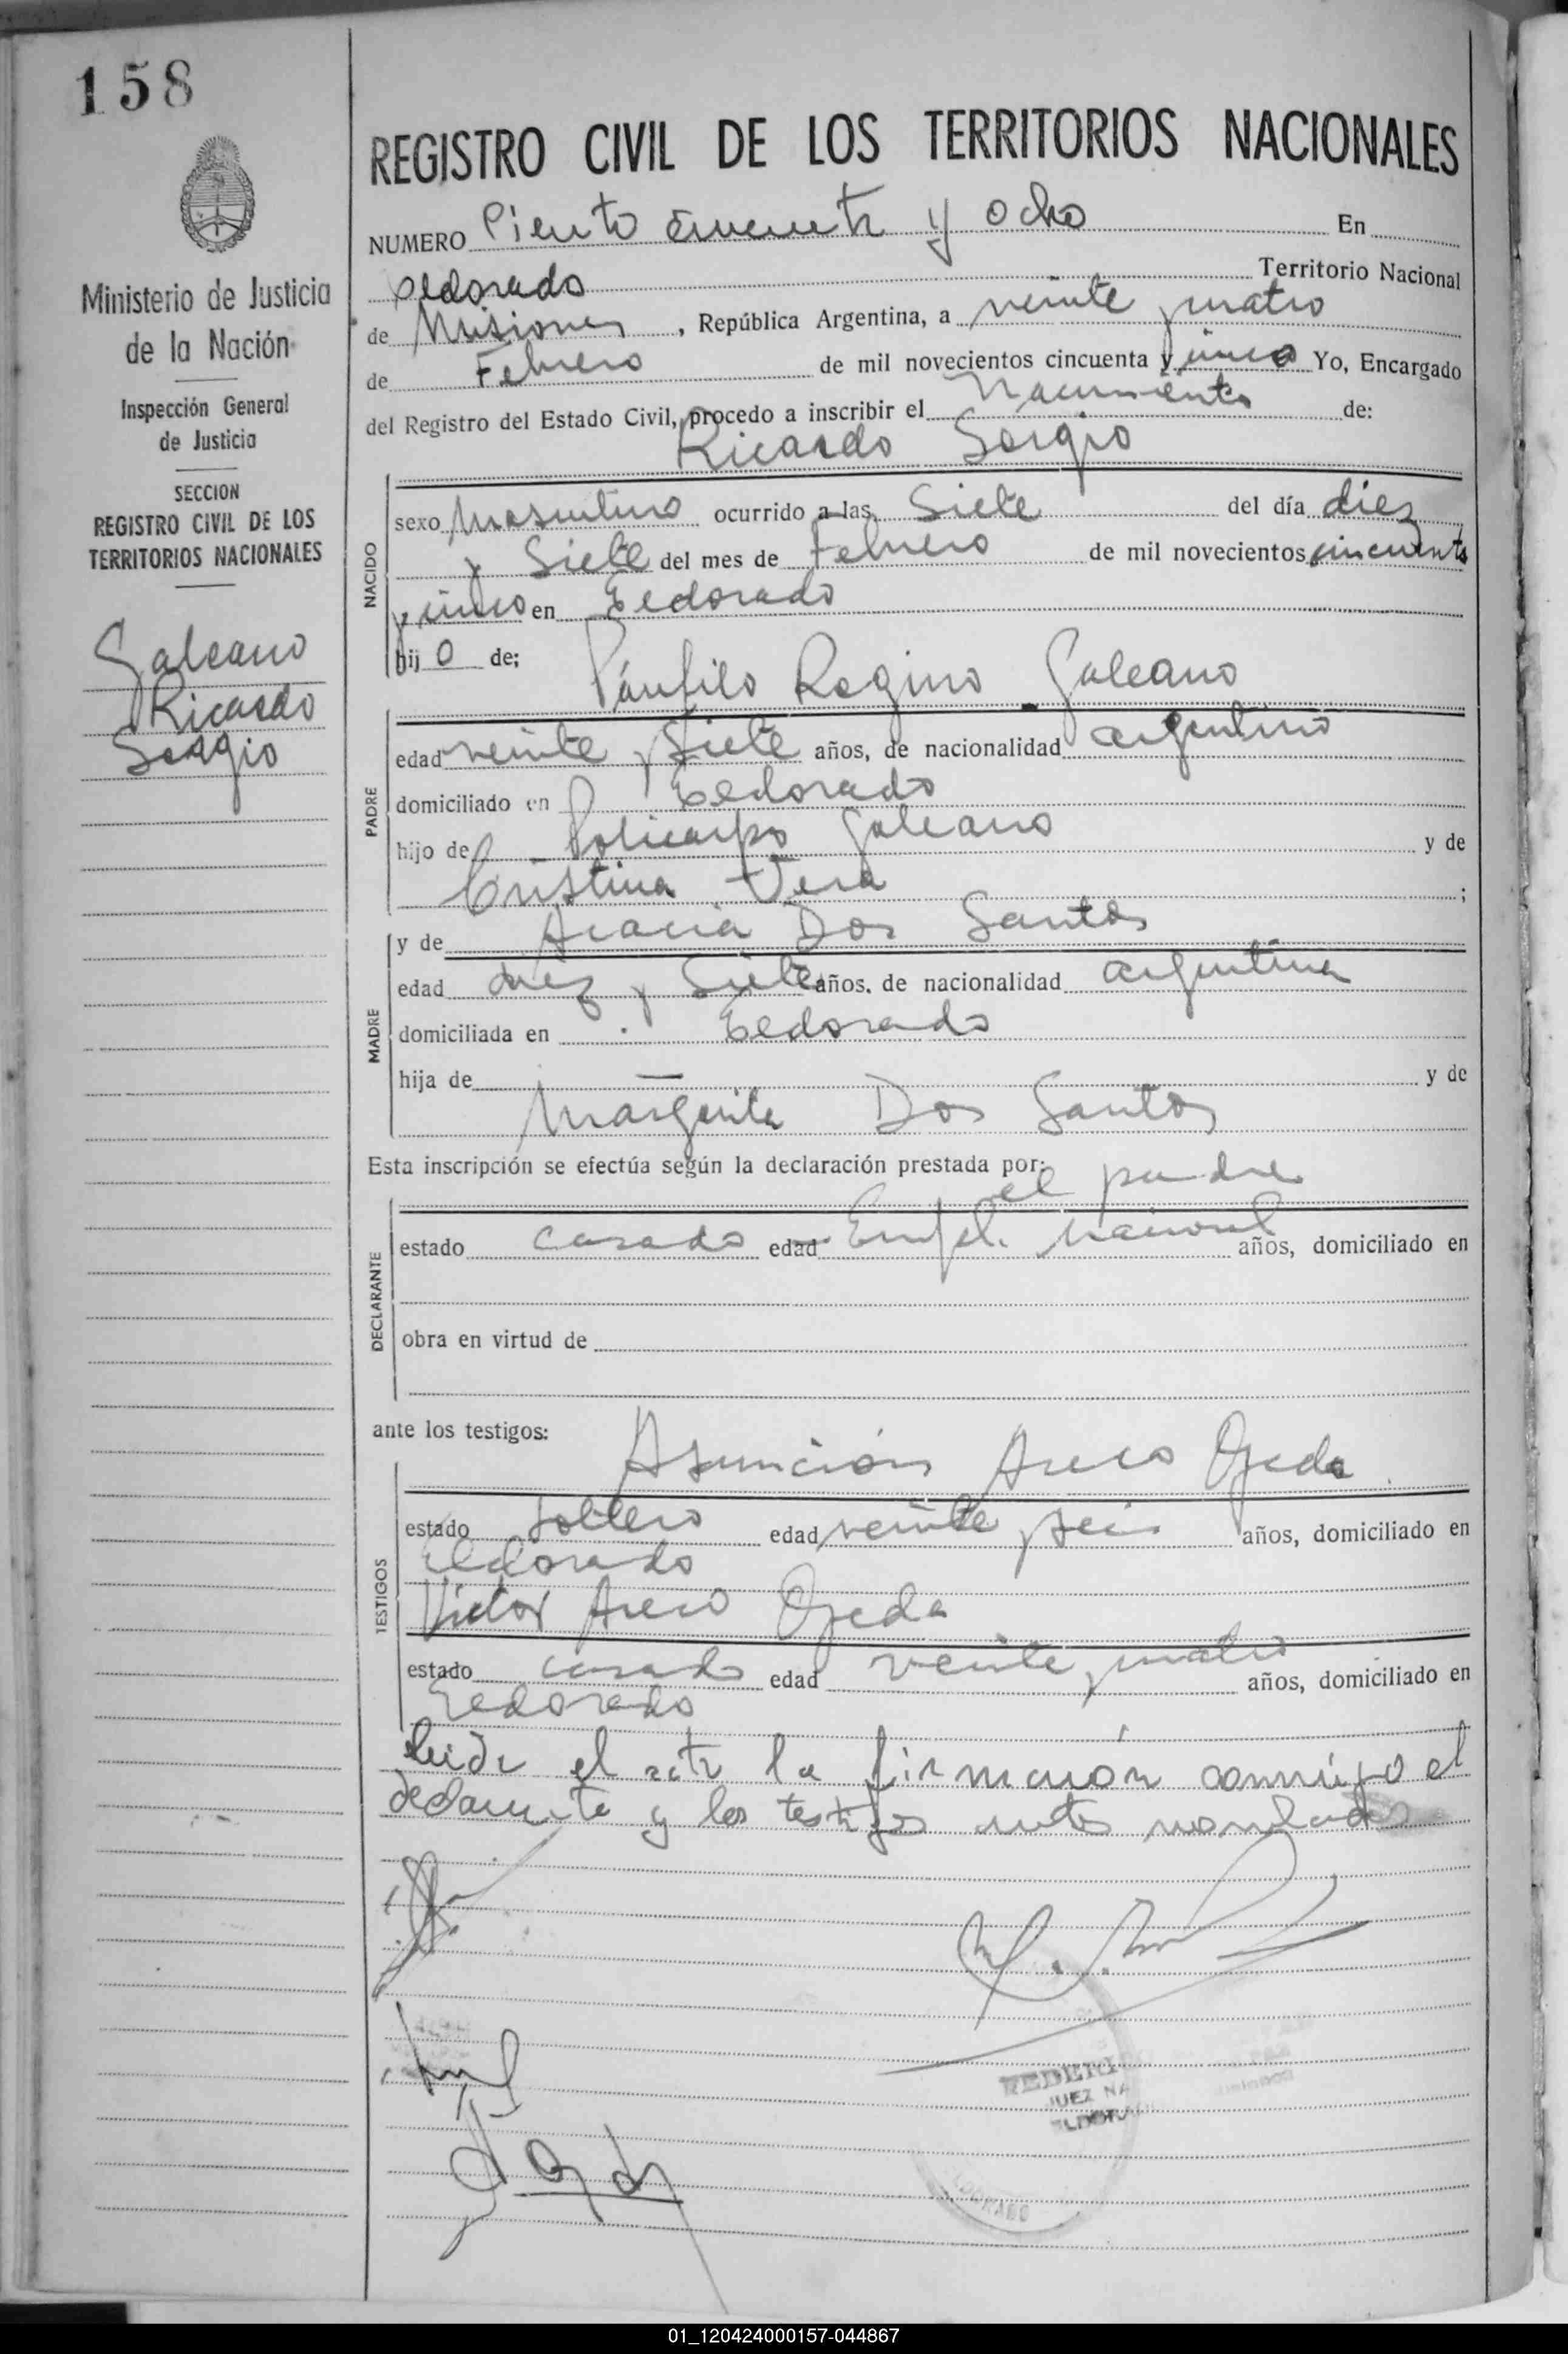 158
Ministerio de Justicia
de la Nación
Inspección General
de Justicia
SECCION
REGISTRO CIVIL DE LOS
TERRITORIOS NACIONALES
Galeano
Ricardo
Sergio
REGISTRO CIVIL DE LOS TERRITORIOS NACIONALES
NUMERO Ciento cincuenta y ocho En
Eldorado Territorio Nacional
de Misiones, República Argentina, a veinte y cuatro
de Febrero de mil novecientos cincuenta y cinco Yo, Encargado
del Registro del Estado Civil, procedo a inscribir el Nacimiento de:
Ricardo Sergio
NACIDO
sexo Masculino ocurrido a las Siete del día diez
y Siete del mes de Febrero de mil novecientos cincuenta
y cinco en Eldorado
hijo de;
Pánfilo Regino Galeano
PADRE
edad veinte y Siete años, de nacionalidad argentino
domiciliado en Eldorado
hijo de Policarpo Galeano y de
Cristina Vera;
MADRE
y de Acacia Dos Santos
edad diez y Siete años, de nacionalidad argentina
domiciliada en Eldorado
hija de — y de
Margarita Dos Santos
Esta inscripción se efectúa según la declaración prestada por:
el padre
DECLARANTE
estado casado edad Empl. Nacional años, domiciliado en
obra en virtud de
ante los testigos:
Asunción Areco Ojeda
TESTIGOS
estado Soltero edad veinte y seis años, domiciliado en
Eldorado
Victor Areco Ojeda
estado casado edad veinte y cuatro años, domiciliado en
Eldorado
Leida el acta la firmaron conmigo el
declarante y los testigos antes nombrados
FEDERI
JUEZ NA
ELDORA
ELDORADO
01_120424000157-044867